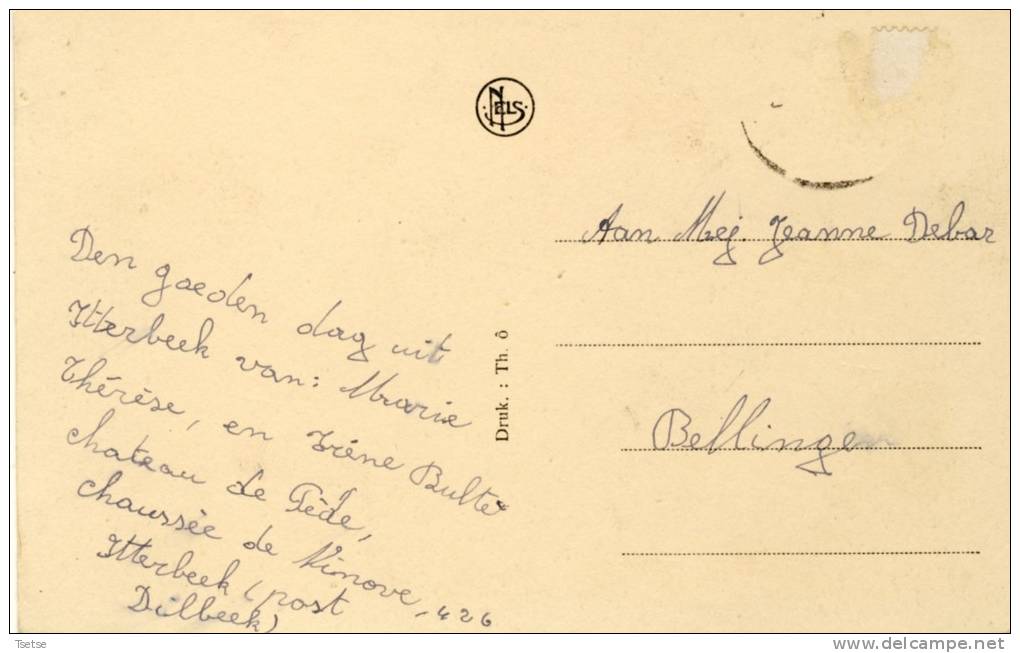 NELS
Den goeden dag uit
Itterbeek van: Marie
Thérèse, en Irène Bulté
chateau de Pède,
chaussée de Ninove, 426
Itterbeek (post
Dilbeek)
Druk. : Th. ô
Aan Mej. Jeanne Debar
Bellingen
Tsetse
delcampe.net